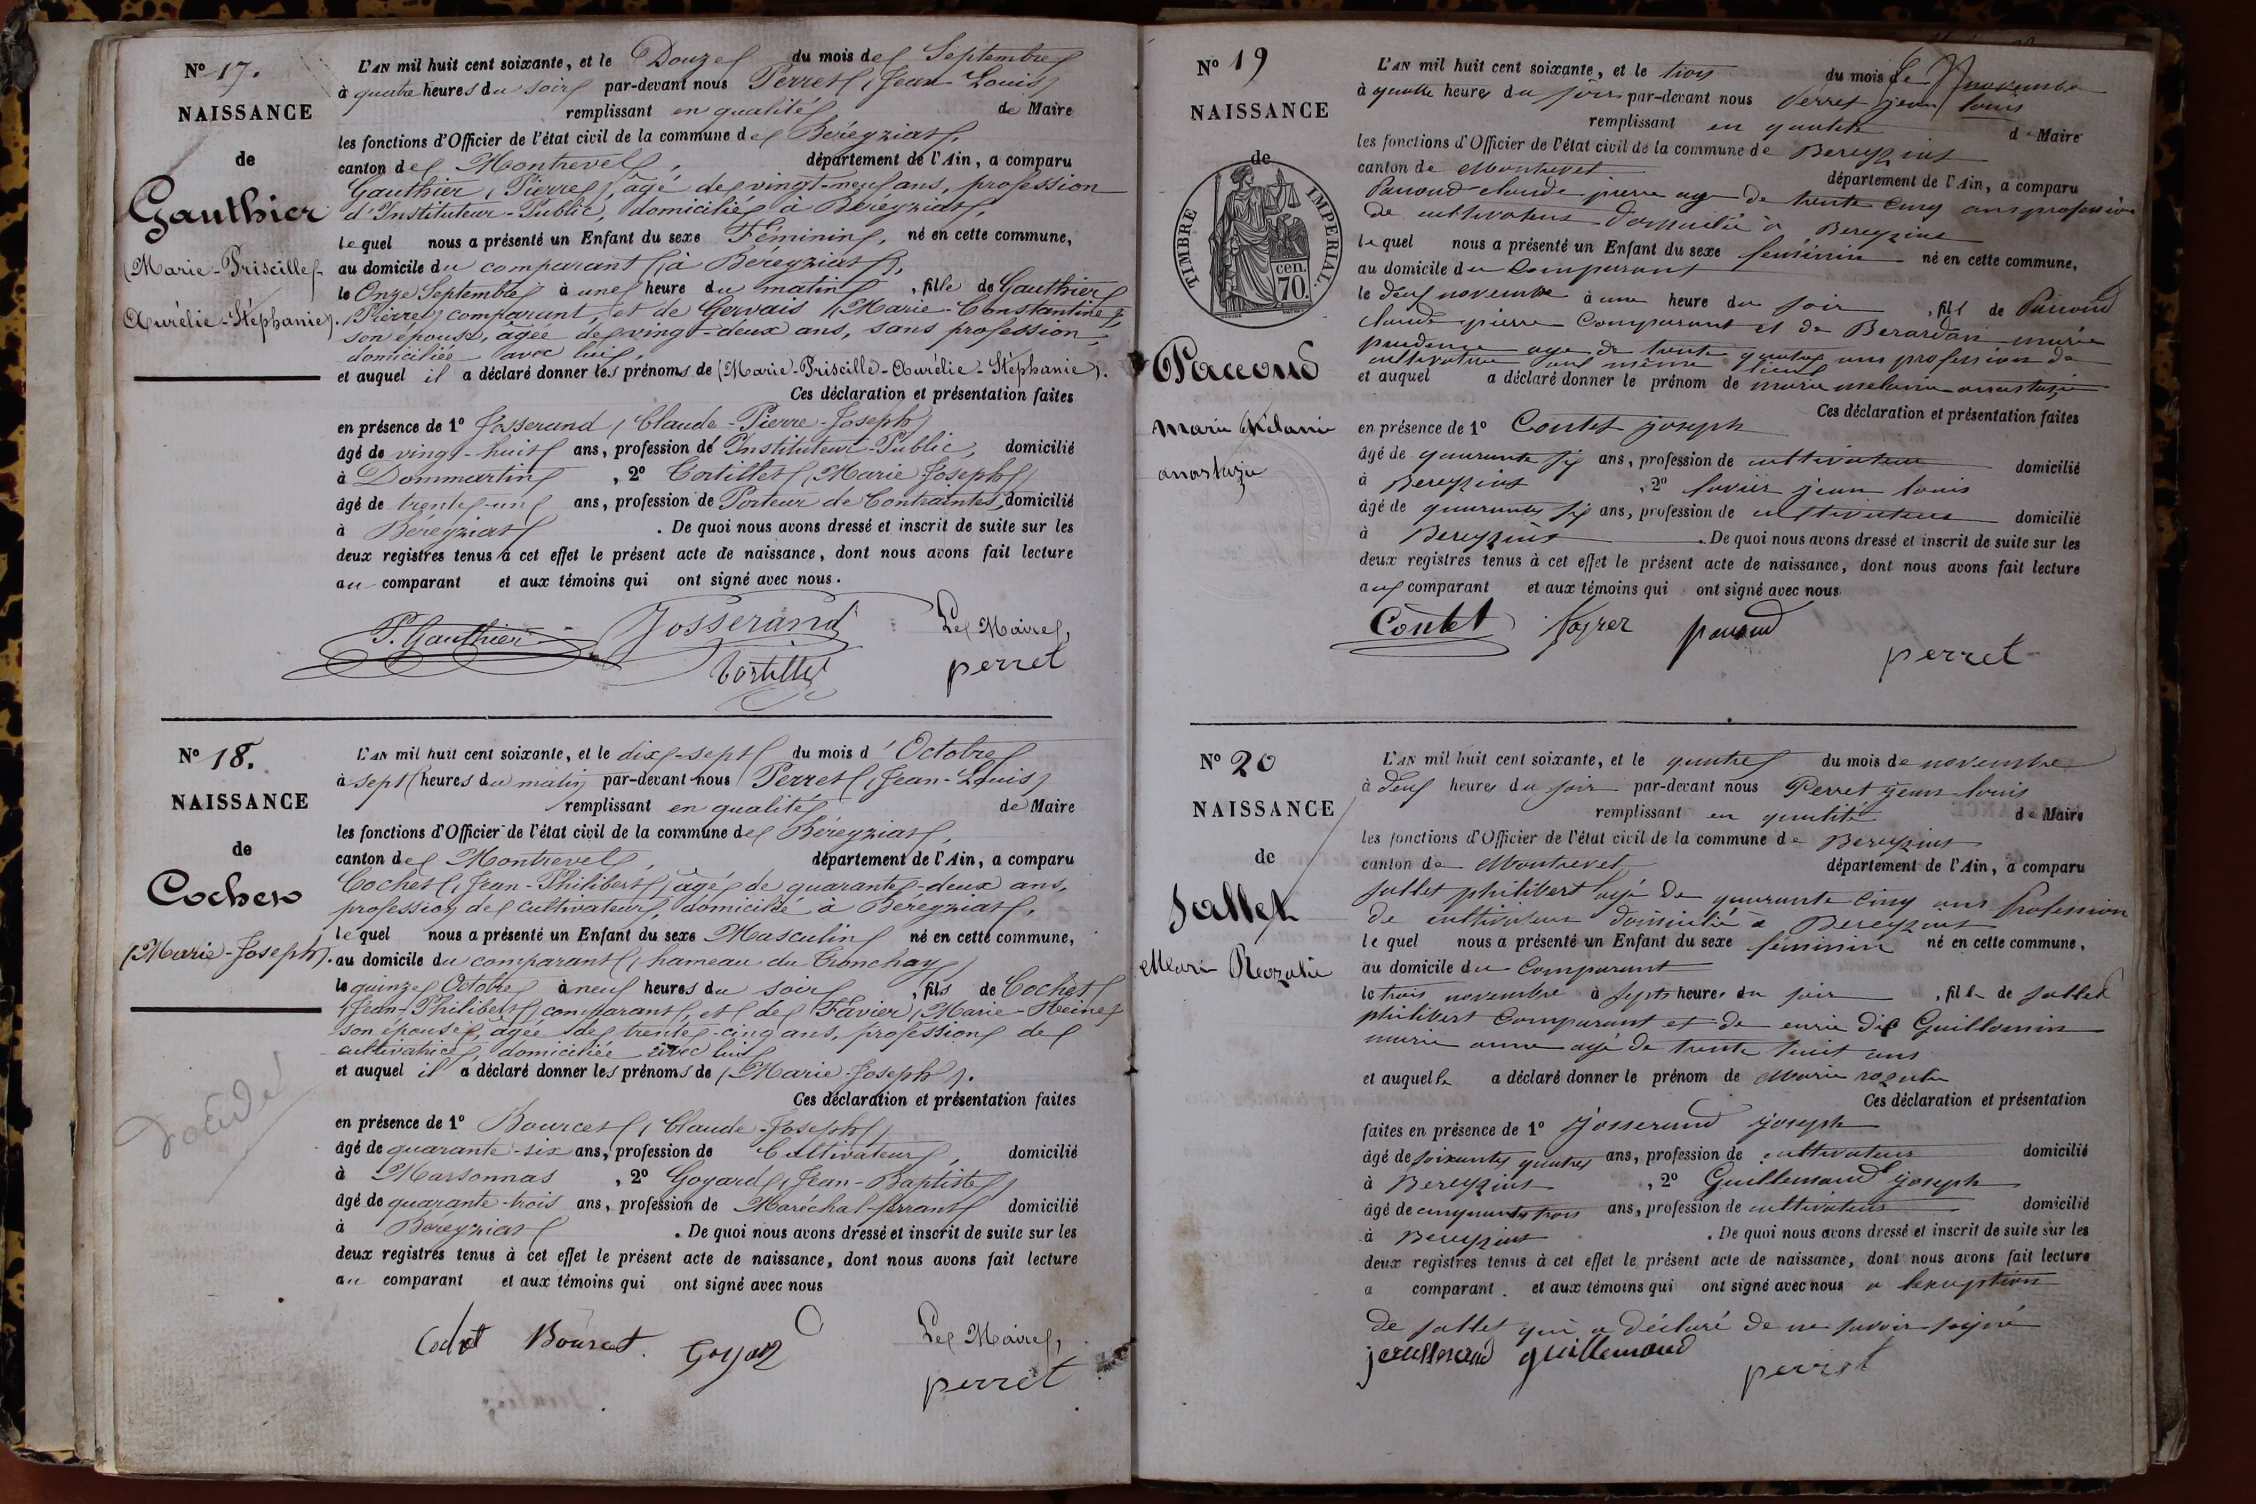 N° 17.
NAISSANCE
de
Gauthier
(Marie-Priscille-
Aurélie-Stéphanie).
L'AN mil huit cent soixante, et le Douze du mois de Septembre
à quatre heures du soir par-devant nous Perret (Jean-Louis)
remplissant en qualité de Maire
les fonctions d'Officier de l'état civil de la commune de Béréyziat,
canton de Montrevel, département de l'Ain, a comparu
Gauthier (Pierre), âgé de vingt-neuf ans, profession
d'Instituteur-Public, domicilié à Béreyziat,
lequel nous a présenté un Enfant du sexe Féminin, né en cette commune,
au domicile du comparant (à Béreyziat),
le Onze Septembre à une heure du matin, fille de Gauthier
(Pierre) comparant, et de Gervais (Marie-Constantine),
son épouse, âgée de vingt-deux ans, sans profession,
domiciliée avec lui,
et auquel il a déclaré donner les prénoms de (Marie-Priscille-Aurélie-Stéphanie).
Ces déclaration et présentation faites
en présence de 1° Josserand (Claude-Pierre-Joseph)
âgé de vingt-huit ans, profession de Instituteur-Public, domicilié
à Dommartin, 2° Tortillet (Marie Joseph)
âgé de trente-un ans, profession de Porteur de Contraintes, domicilié
à Béréyziat. De quoi nous avons dressé et inscrit de suite sur les
deux registres tenus à cet effet le présent acte de naissance, dont nous avons fait lecture
au comparant et aux témoins qui ont signé avec nous.
P. Gauthier Josserand Le Maire,
Tortillet perret
N° 18.
NAISSANCE
de
Cochet
(Marie-Joseph).
L'AN mil huit cent soixante, et le dix-sept du mois d'Octobre
à sept heures du matin par-devant nous Perret (Jean-Louis)
remplissant en qualité de Maire
les fonctions d'Officier de l'état civil de la commune de Béréyziat,
canton de Montrevel, département de l'Ain, a comparu
Cochet (Jean-Philibert), âgé de quarante-deux ans,
profession de cultivateur, domicilié à Béreyziat,
lequel nous a présenté un Enfant du sexe Masculin né en cette commune,
au domicile du comparant (hameau du Tronchay)
le quinze Octobre à neuf heures du soir, fils de Cochet
(Jean-Philibert) comparant, et de Favier (Marie-Reine)
son épouse, âgée de trente-cinq ans, profession de
cultivatrice, domiciliée avec lui
et auquel il a déclaré donner les prénoms de (Marie-Joseph).
Ces déclaration et présentation faites
en présence de 1° Bourcet (Claude-Joseph)
âgé de quarante-six ans, profession de Cultivateur, domicilié
à Marsonnas, 2° Goyard (Jean-Baptiste)
âgé de quarante-trois ans, profession de Maréchal-ferrant domicilié
à Béréyziat. De quoi nous avons dressé et inscrit de suite sur les
deux registres tenus à cet effet le présent acte de naissance, dont nous avons fait lecture
au comparant et aux témoins qui ont signé avec nous
Cochet Bourcet. Goyard Le Maire,
perret
N° 19
NAISSANCE
de
TIMBRE IMPERIAL.
cen.
70.
Pacoud
Marie Mélanie
anastazie
L'AN mil huit cent soixante, et le trois du mois de Novembre
à quatre heures du soir par-devant nous Perret jean louis
remplissant en qualité de Maire
les fonctions d'Officier de l'état civil de la commune de Bereyziat
canton de Montrevel département de l'Ain, a comparu
Pacoud claude pierre age de trente cinq ans profession
de cultivateur domicilié à Bereyziat
lequel nous a présenté un Enfant du sexe féminin né en cette commune,
au domicile du Comparant
le deux novembre à une heure du soir, fille de Pacoud
claude pierre Comparant et de Berardan marie
prudence age de trente quatre ans profession de
cultivatrice au même lieu
et auquel a déclaré donner le prénom de marie melanie anastazie
Ces déclaration et présentation faites
en présence de 1° Contet joseph
âgé de quarante six ans, profession de cultivateur domicilié
à Bereyziat, 2° favier jean louis
âgé de quarante six ans, profession de cultivateur domicilié
à Bereyziat. De quoi nous avons dressé et inscrit de suite sur les
deux registres tenus à cet effet le présent acte de naissance, dont nous avons fait lecture
aux comparant et aux témoins qui ont signé avec nous
Contet pacoud
perret
N° 20
NAISSANCE
de
Sallet
Marie Rozalie
L'AN mil huit cent soixante, et le quatre du mois de novembre
à deux heures du soir par-devant nous Perret jean louis
remplissant en qualité de Maire
les fonctions d'Officier de l'état civil de la commune de Bereyziat
canton de Montrevel département de l'Ain, a comparu
Sallet philibert agé de quarante cinq ans profession
de cultivateur domicilié à Bereyziat
lequel nous a présenté un Enfant du sexe féminin né en cette commune,
au domicile du Comparant
le trois novembre à sept heures du soir, fille de Sallet
philibert Comparant et de Guillomin
marie anne agé de trente huit ans
et auquel a déclaré donner le prénom de Marie rozalie
Ces déclaration et présentation
faites en présence de 1° Josserand joseph
âgé de soixante quatre ans, profession de cultivateur domicilié
à Bereyziat, 2° Guillemaud joseph
âgé de cinquante trois ans, profession de cultivateur domicilié
à Bereyziat. De quoi nous avons dressé et inscrit de suite sur les
deux registres tenus à cet effet le présent acte de naissance, dont nous avons fait lecture
a comparant. et aux témoins qui ont signé avec nous a lexception
de Sallet qui a déclaré de ne savoir signé
guillemaud perret